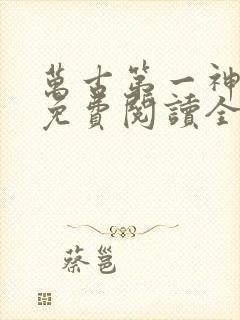 萬古第一神
免費閱讀全
蔡邕